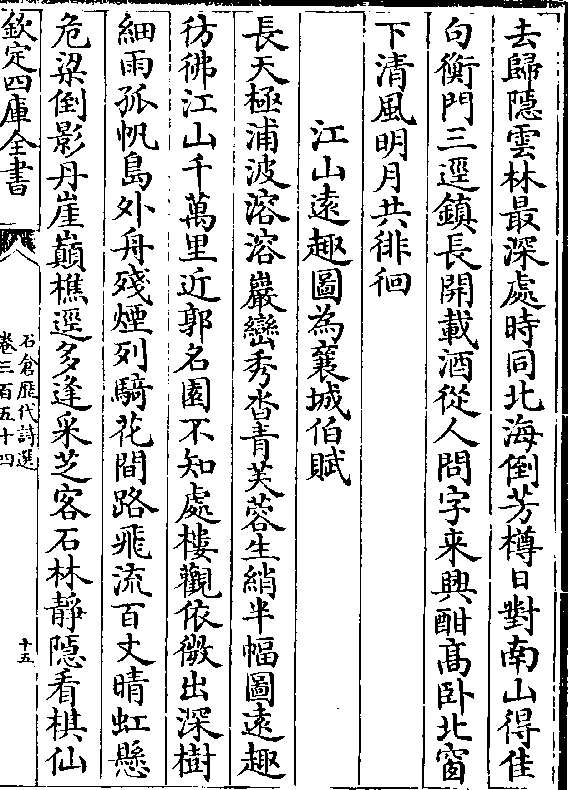 去歸隱雲林最深處時同北海倒芳樽日對南山得佳
句衡門三逕鎮長開載酒從人問字来興酣髙卧北窗
下清風明月共徘徊
江山遠趣圖為襄城伯賦
長天極浦波溶溶巖巒秀沓青芙蓉生綃半幅圖遠趣
彷彿江山千萬里近郭名園不知處樓觀依微出深樹
細雨孤帆島外舟殘煙列騎花間路飛流百丈晴虹懸
危梁倒影丹崖巔樵逕多逢采芝客石林靜隱看棋仙
欽定四庫全書
石倉歷代詩選
卷三百五十四
十五